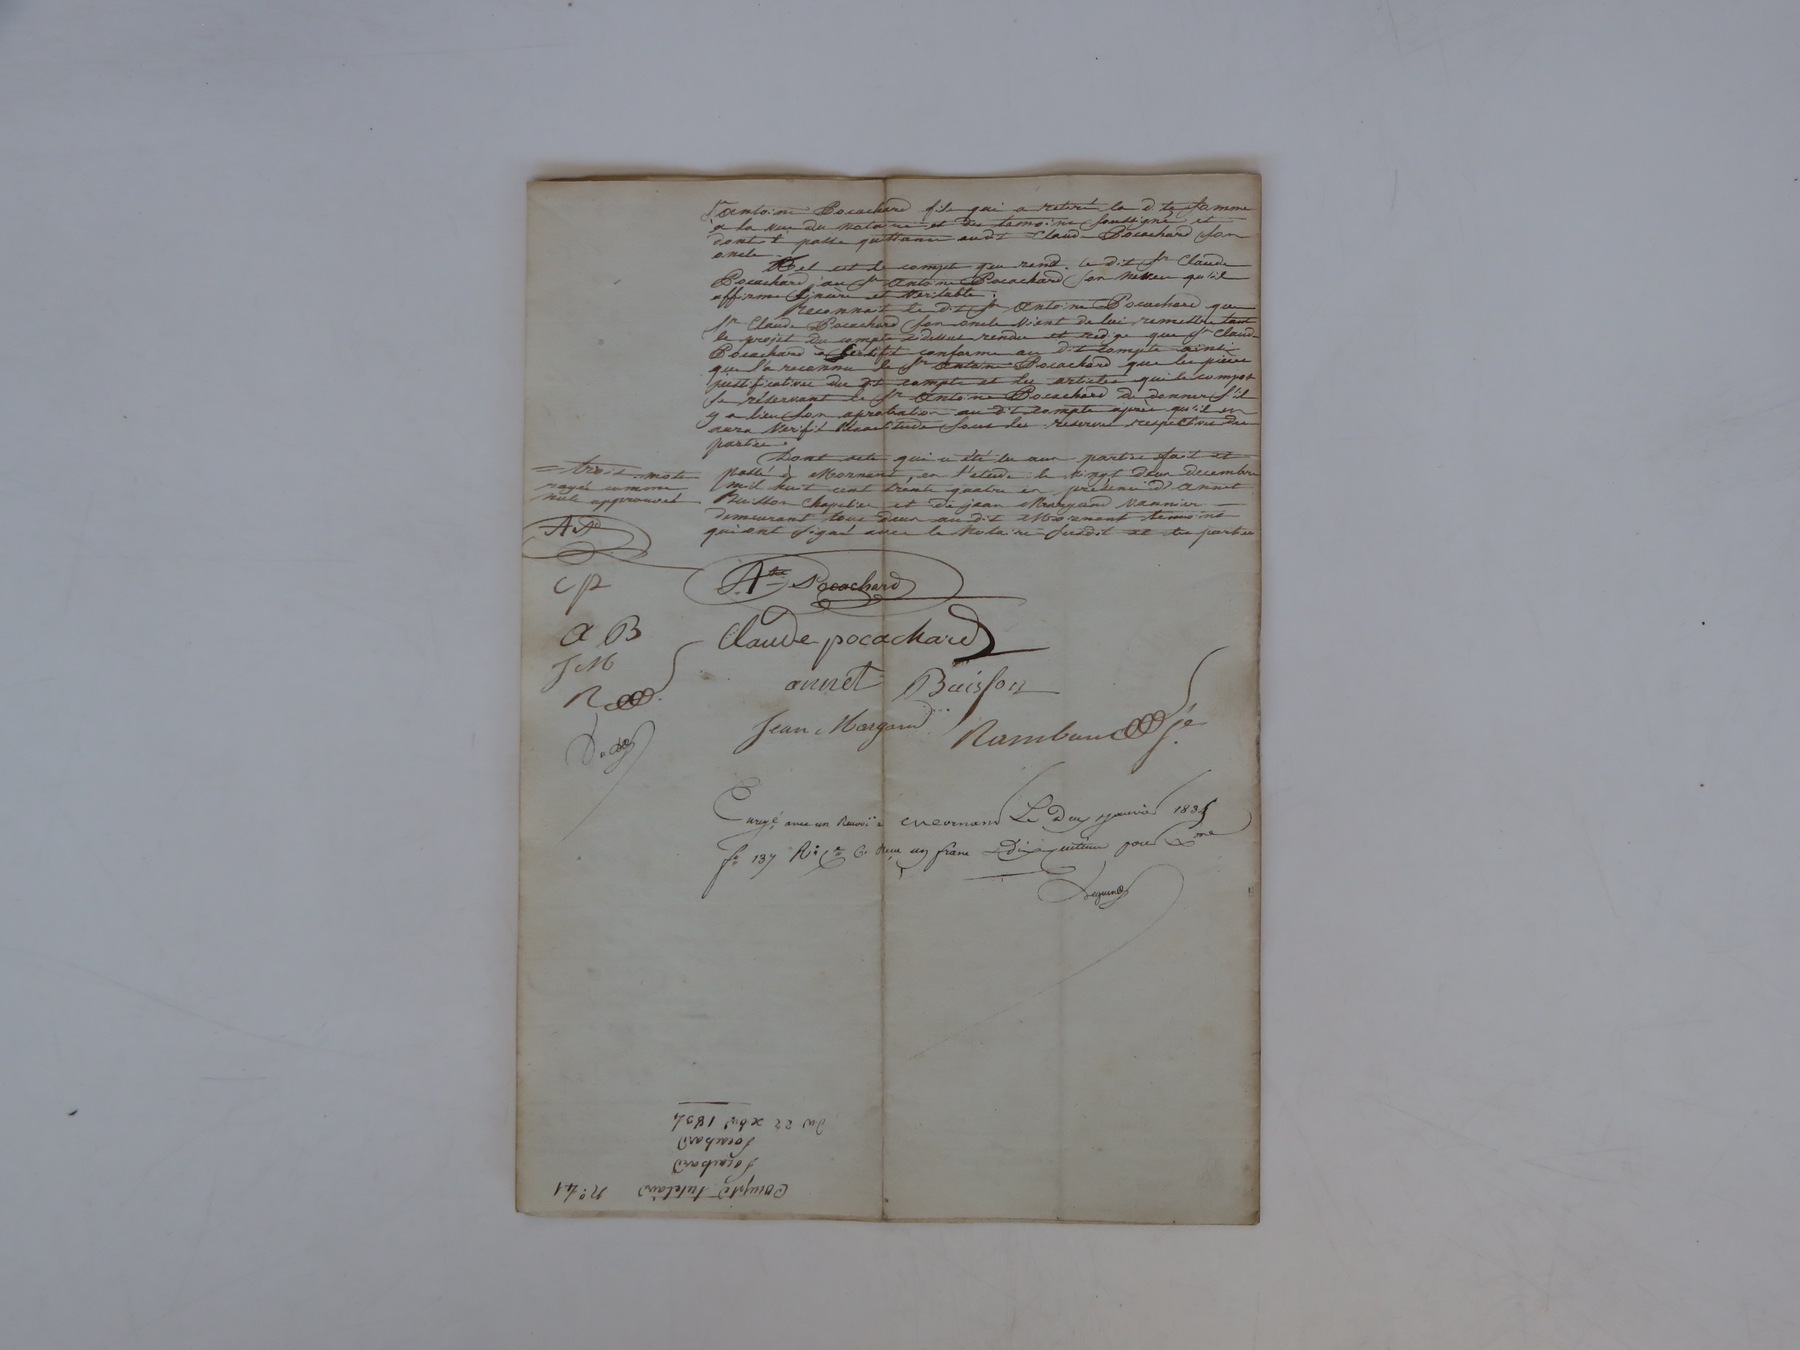 Sr Antoine Pocachard fils qui a retiré la dite somme
a la vue du notaire et des temoins soussignés et
dont il passe quittance audit Claude Pocachard son
oncle.
Tel est le compte que rend le dit Sr Claude
Pocachard au Sr Antoine Pocachard son neveu qu'il
affirme sincère et veritable.
Reconnait le dit Sr Antoine Pocachard que
Sr Claude Pocachard son oncle vient de lui remettre tant
le projet du compte cidessus rendu et redigé que Sr Claude
Pocachard a certifié conforme au dit compte ainsi
que l'a reconnu le Sr Antoine Pocachard que les pièces
justificatives du dit compte et des articles qui le compose
se réservant le Sr Antoine Pocachard de donner s'il
y a lieu son aprobation au dit compte après qu'il en
aura verifié l'exactitude sous les reserves respectives des
parties.
Dont acte qui a été lu aux parties fait et
passé à Mornant, en l'étude le vingt deux decembre
mil huit cent trente quatre en présence d'annet
Buisson Chapelier et de jean Margand vannier
demeurant tous deux au dit Mornant temoins
qui ont signé avec le Notaire susdit et les parties
= trois mots
rayés comme
nuls approuvés
A Pd
C p
A B
J M
R
Ate Pocachard
Claude pocachard
annet Buisson
Jean Margand
Rambaud
Enregé avec un Renvoi à Mornant Le Deux janvier 1835
fo 137 Ro Ce 6 Reçu un franc Dix centimes pour Dme
N° 41 Compte tutelaire
Pocachard
Pocachard
du 22 xbre 1834